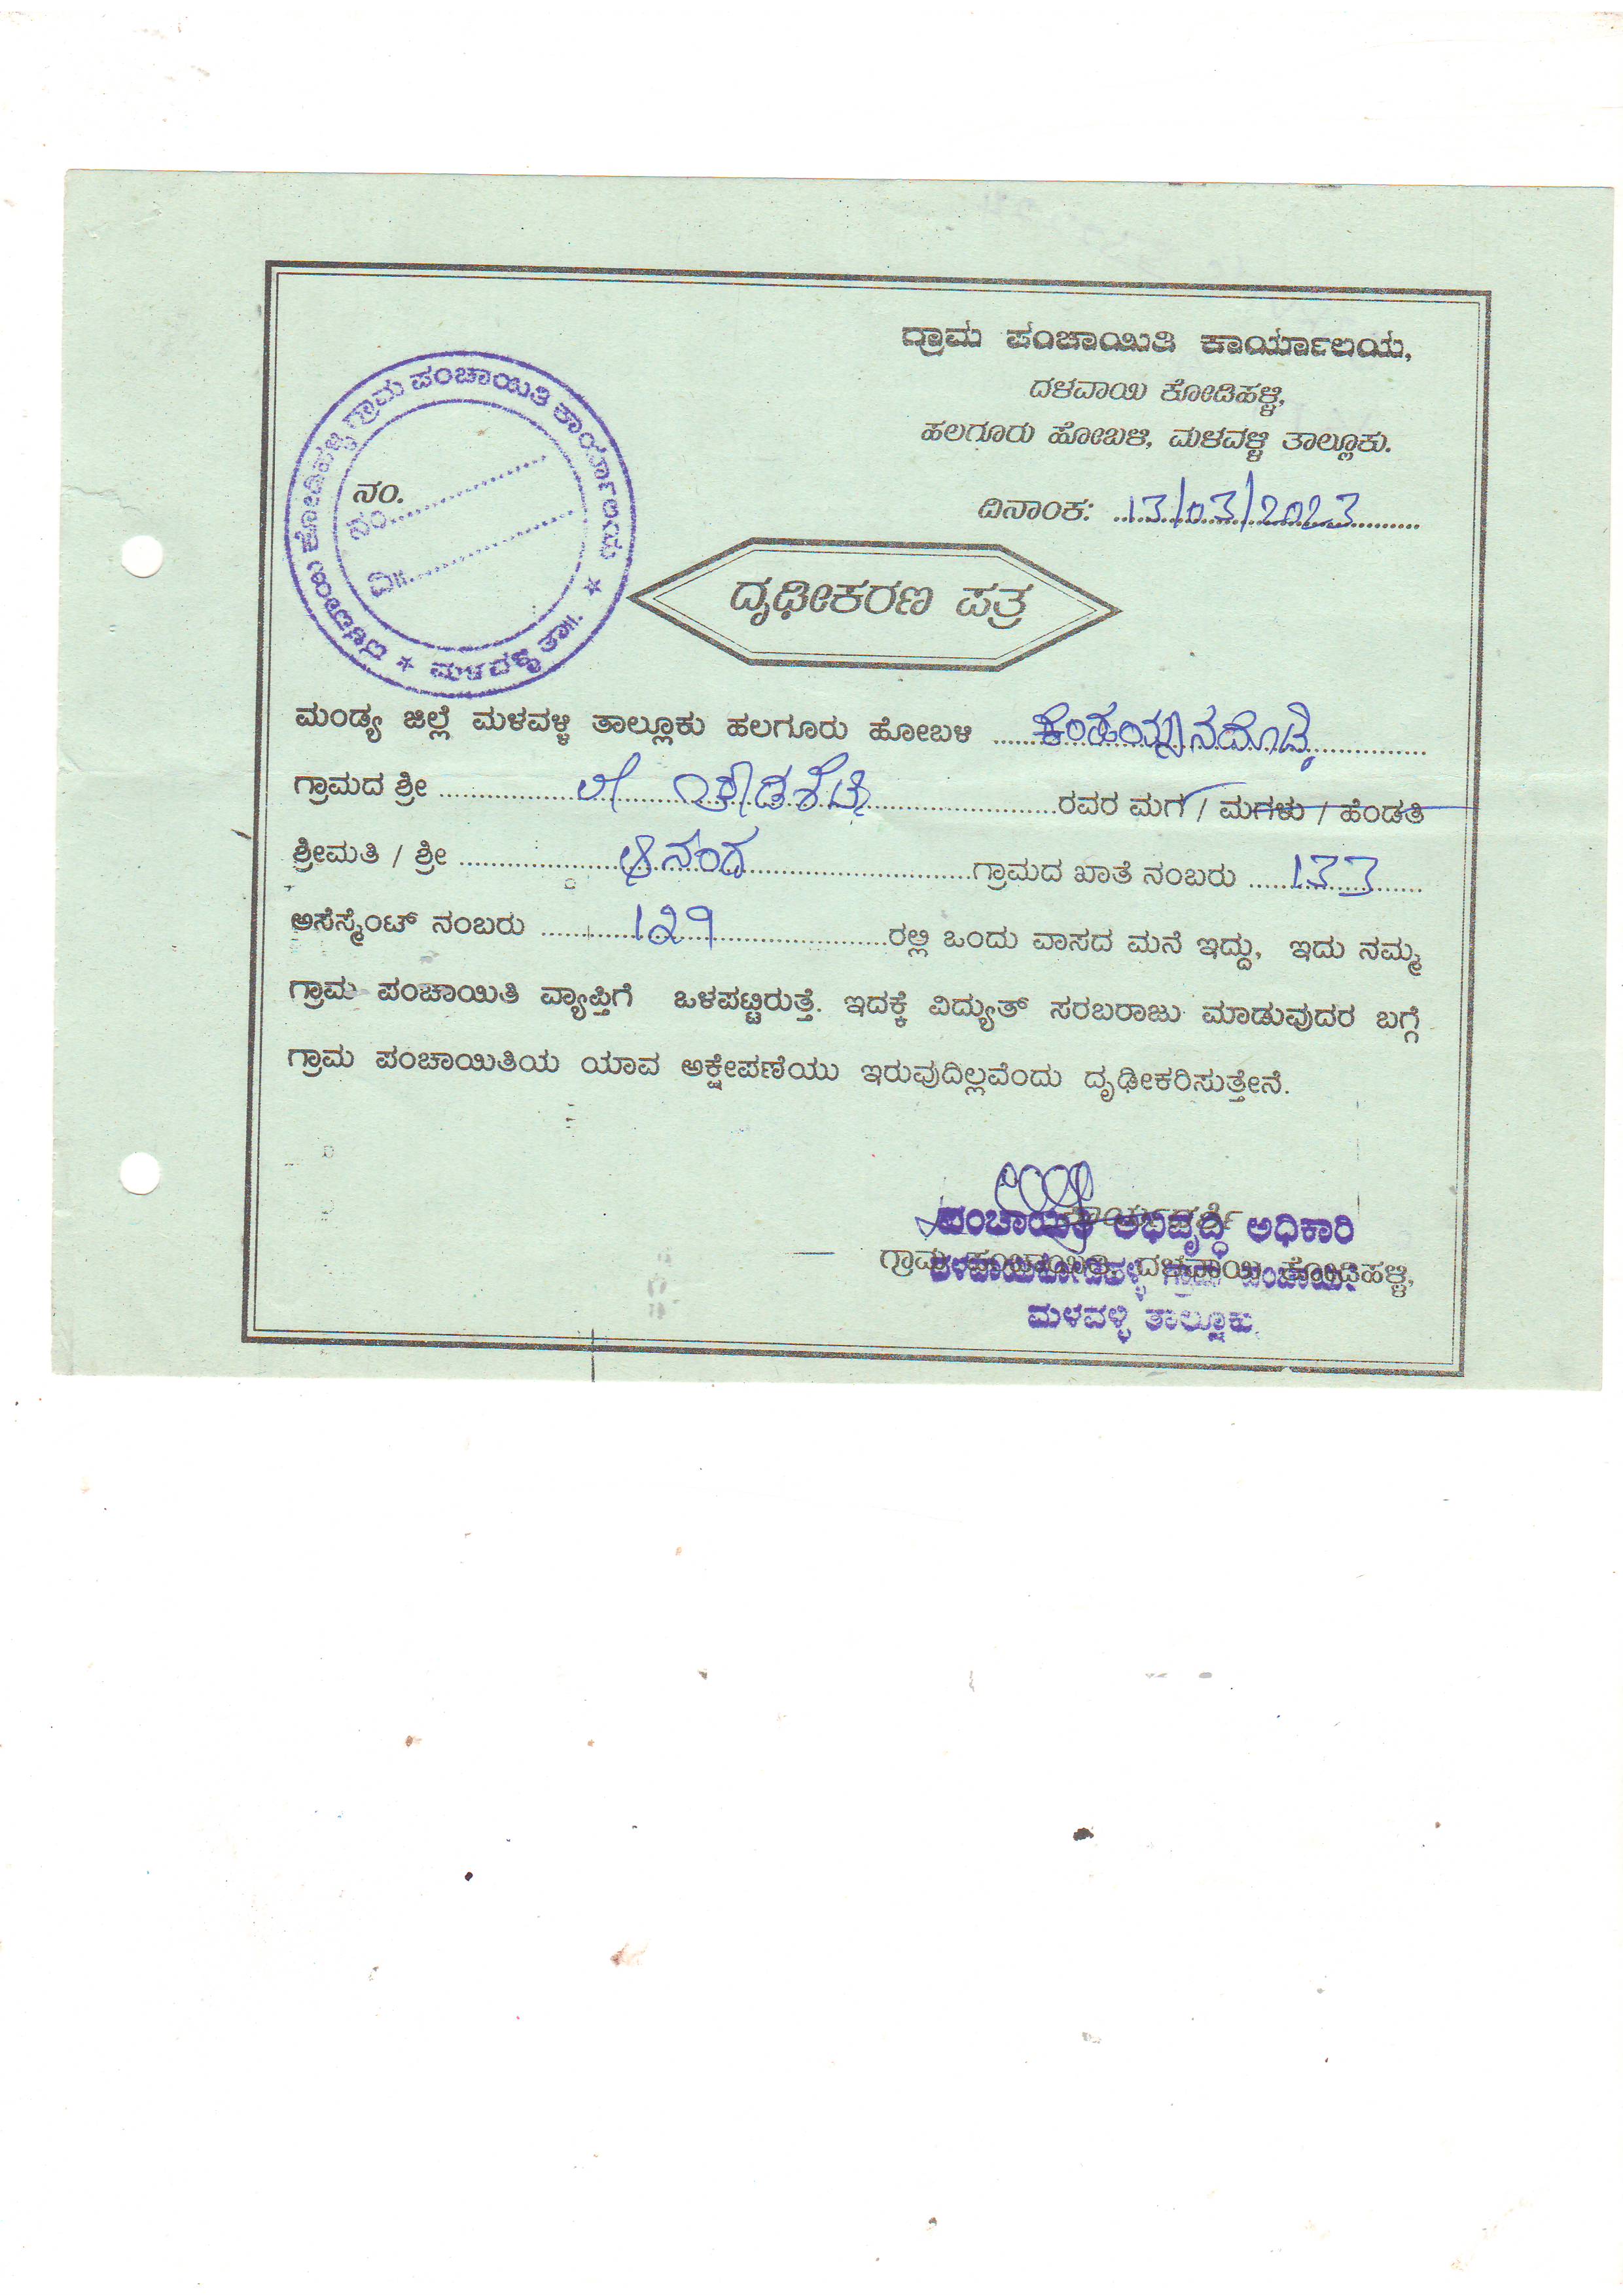 ಗ್ರಾಮ ಪಂಚಾಯಿತಿ ಕಾರ್ಯಾಲಯ,
ದಳವಾಯಿ ಕೋಡಿಹಳ್ಳಿ,
ಹಲಗೂರು ಹೋಬಳಿ, ಮಳವಳ್ಳಿ ತಾಲ್ಲೂಕು.
ದಳವಾಯಿ ಕೋಡಿಹಳ್ಳಿ ಗ್ರಾಮ ಪಂಚಾಯಿತಿ ಕಾರ್ಯಾಲಯ ★ ಮಳವಳ್ಳಿ ತಾ॥. ★
ನಂ.
ನಂ.
ದಿ॥.
ದಿನಾಂಕ: 13/03/2023
ದೃಢೀಕರಣ ಪತ್ರ
ಮಂಡ್ಯ ಜಿಲ್ಲೆ ಮಳವಳ್ಳಿ ತಾಲ್ಲೂಕು ಹಲಗೂರು ಹೋಬಳಿ
ಗ್ರಾಮದ ಶ್ರೀ ರವರ ಮಗ / ಮಗಳು / ಹೆಂಡತಿ
ಶ್ರೀಮತಿ / ಶ್ರೀ ಗ್ರಾಮದ ಖಾತೆ ನಂಬರು 133
ಅಸೆಸ್ಮೆಂಟ್ ನಂಬರು 129 ರಲ್ಲಿ ಒಂದು ವಾಸದ ಮನೆ ಇದ್ದು, ಇದು ನಮ್ಮ
ಗ್ರಾಮ ಪಂಚಾಯಿತಿ ವ್ಯಾಪ್ತಿಗೆ ಒಳಪಟ್ಟಿರುತ್ತೆ. ಇದಕ್ಕೆ ವಿದ್ಯುತ್ ಸರಬರಾಜು ಮಾಡುವುದರ ಬಗ್ಗೆ
ಗ್ರಾಮ ಪಂಚಾಯಿತಿಯ ಯಾವ ಅಕ್ಷೇಪಣೆಯು ಇರುವುದಿಲ್ಲವೆಂದು ದೃಢೀಕರಿಸುತ್ತೇನೆ.
ಪಂಚಾಯಿತಿ ಅಭಿವೃದ್ಧಿ ಅಧಿಕಾರಿ
ಗ್ರಾಮ ಪಂಚಾಯಿತಿ, ದಳವಾಯಿ ಕೋಡಿಹಳ್ಳಿ,
ಮಳವಳ್ಳಿ ತಾಲ್ಲೂಕು.